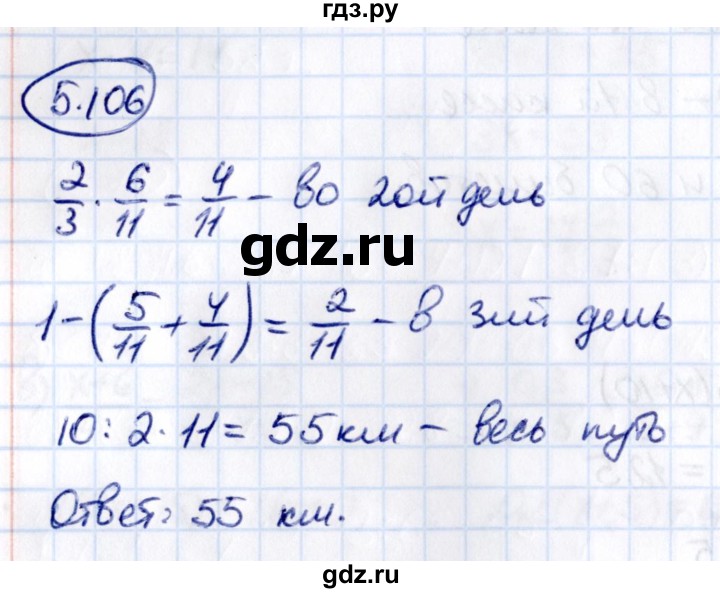 гдз.ру
5.106
2/3 · 6/11 = 4/11 - во 2ой день
gdz.ru
1 - (5/11 + 4/11) = 2/11 - в 3ий день
10 : 2 · 11 = 55 км - весь путь
Ответ: 55 км.
gdz.ru